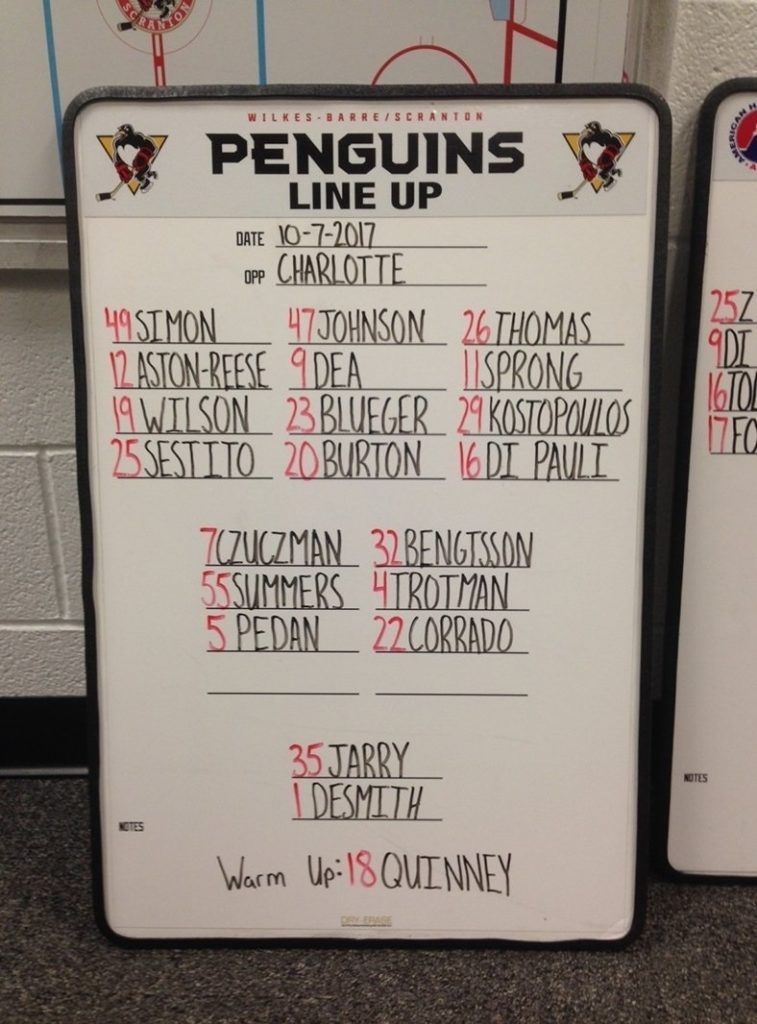 SCRANTON
WILKES-BARRE/SCRANTON
PENGUINS
LINE UP
DATE 10-7-2017
OPP CHARLOTTE
49 SIMON 47 JOHNSON 26 THOMAS
12 ASTON-REESE 9 DEA 11 SPRONG
19 WILSON 23 BLUEGER 29 KOSTOPOULOS
25 SESTITO 20 BURTON 16 DI PAULI
7 CZUCZMAN 32 BENGTSSON
55 SUMMERS 4 TROTMAN
5 PEDAN 22 CORRADO
35 JARRY
1 DESMITH
NOTES
Warm Up: 18 QUINNEY
DRY-ERASE
AMERICAN H
25 Z
9 DI
16 TOL
17 FO
NOTES